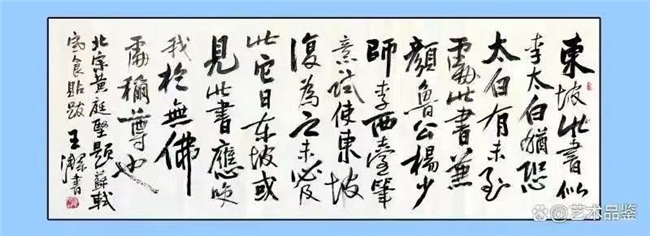 東坡此書似
李太白猶恐
太白有未到
處此書兼
顏魯公楊少
師李西臺筆
意試使東坡
復為之未必
此它日東坡或
見此書應笑
我於無佛
處稱尊也
北宗黄庭堅題蘇軾
寒食帖跋 王 書
艺术品鉴